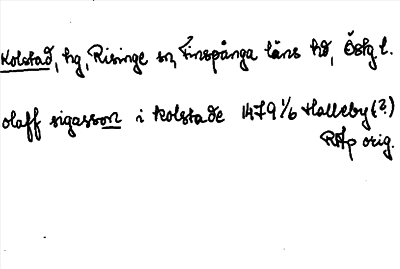 Kolstad, hg, Risinge sn, Finspånga läns hd, Östg l.
olaff sigasson i kolstade 1479 1/6 Halleby (?)
RAp orig.